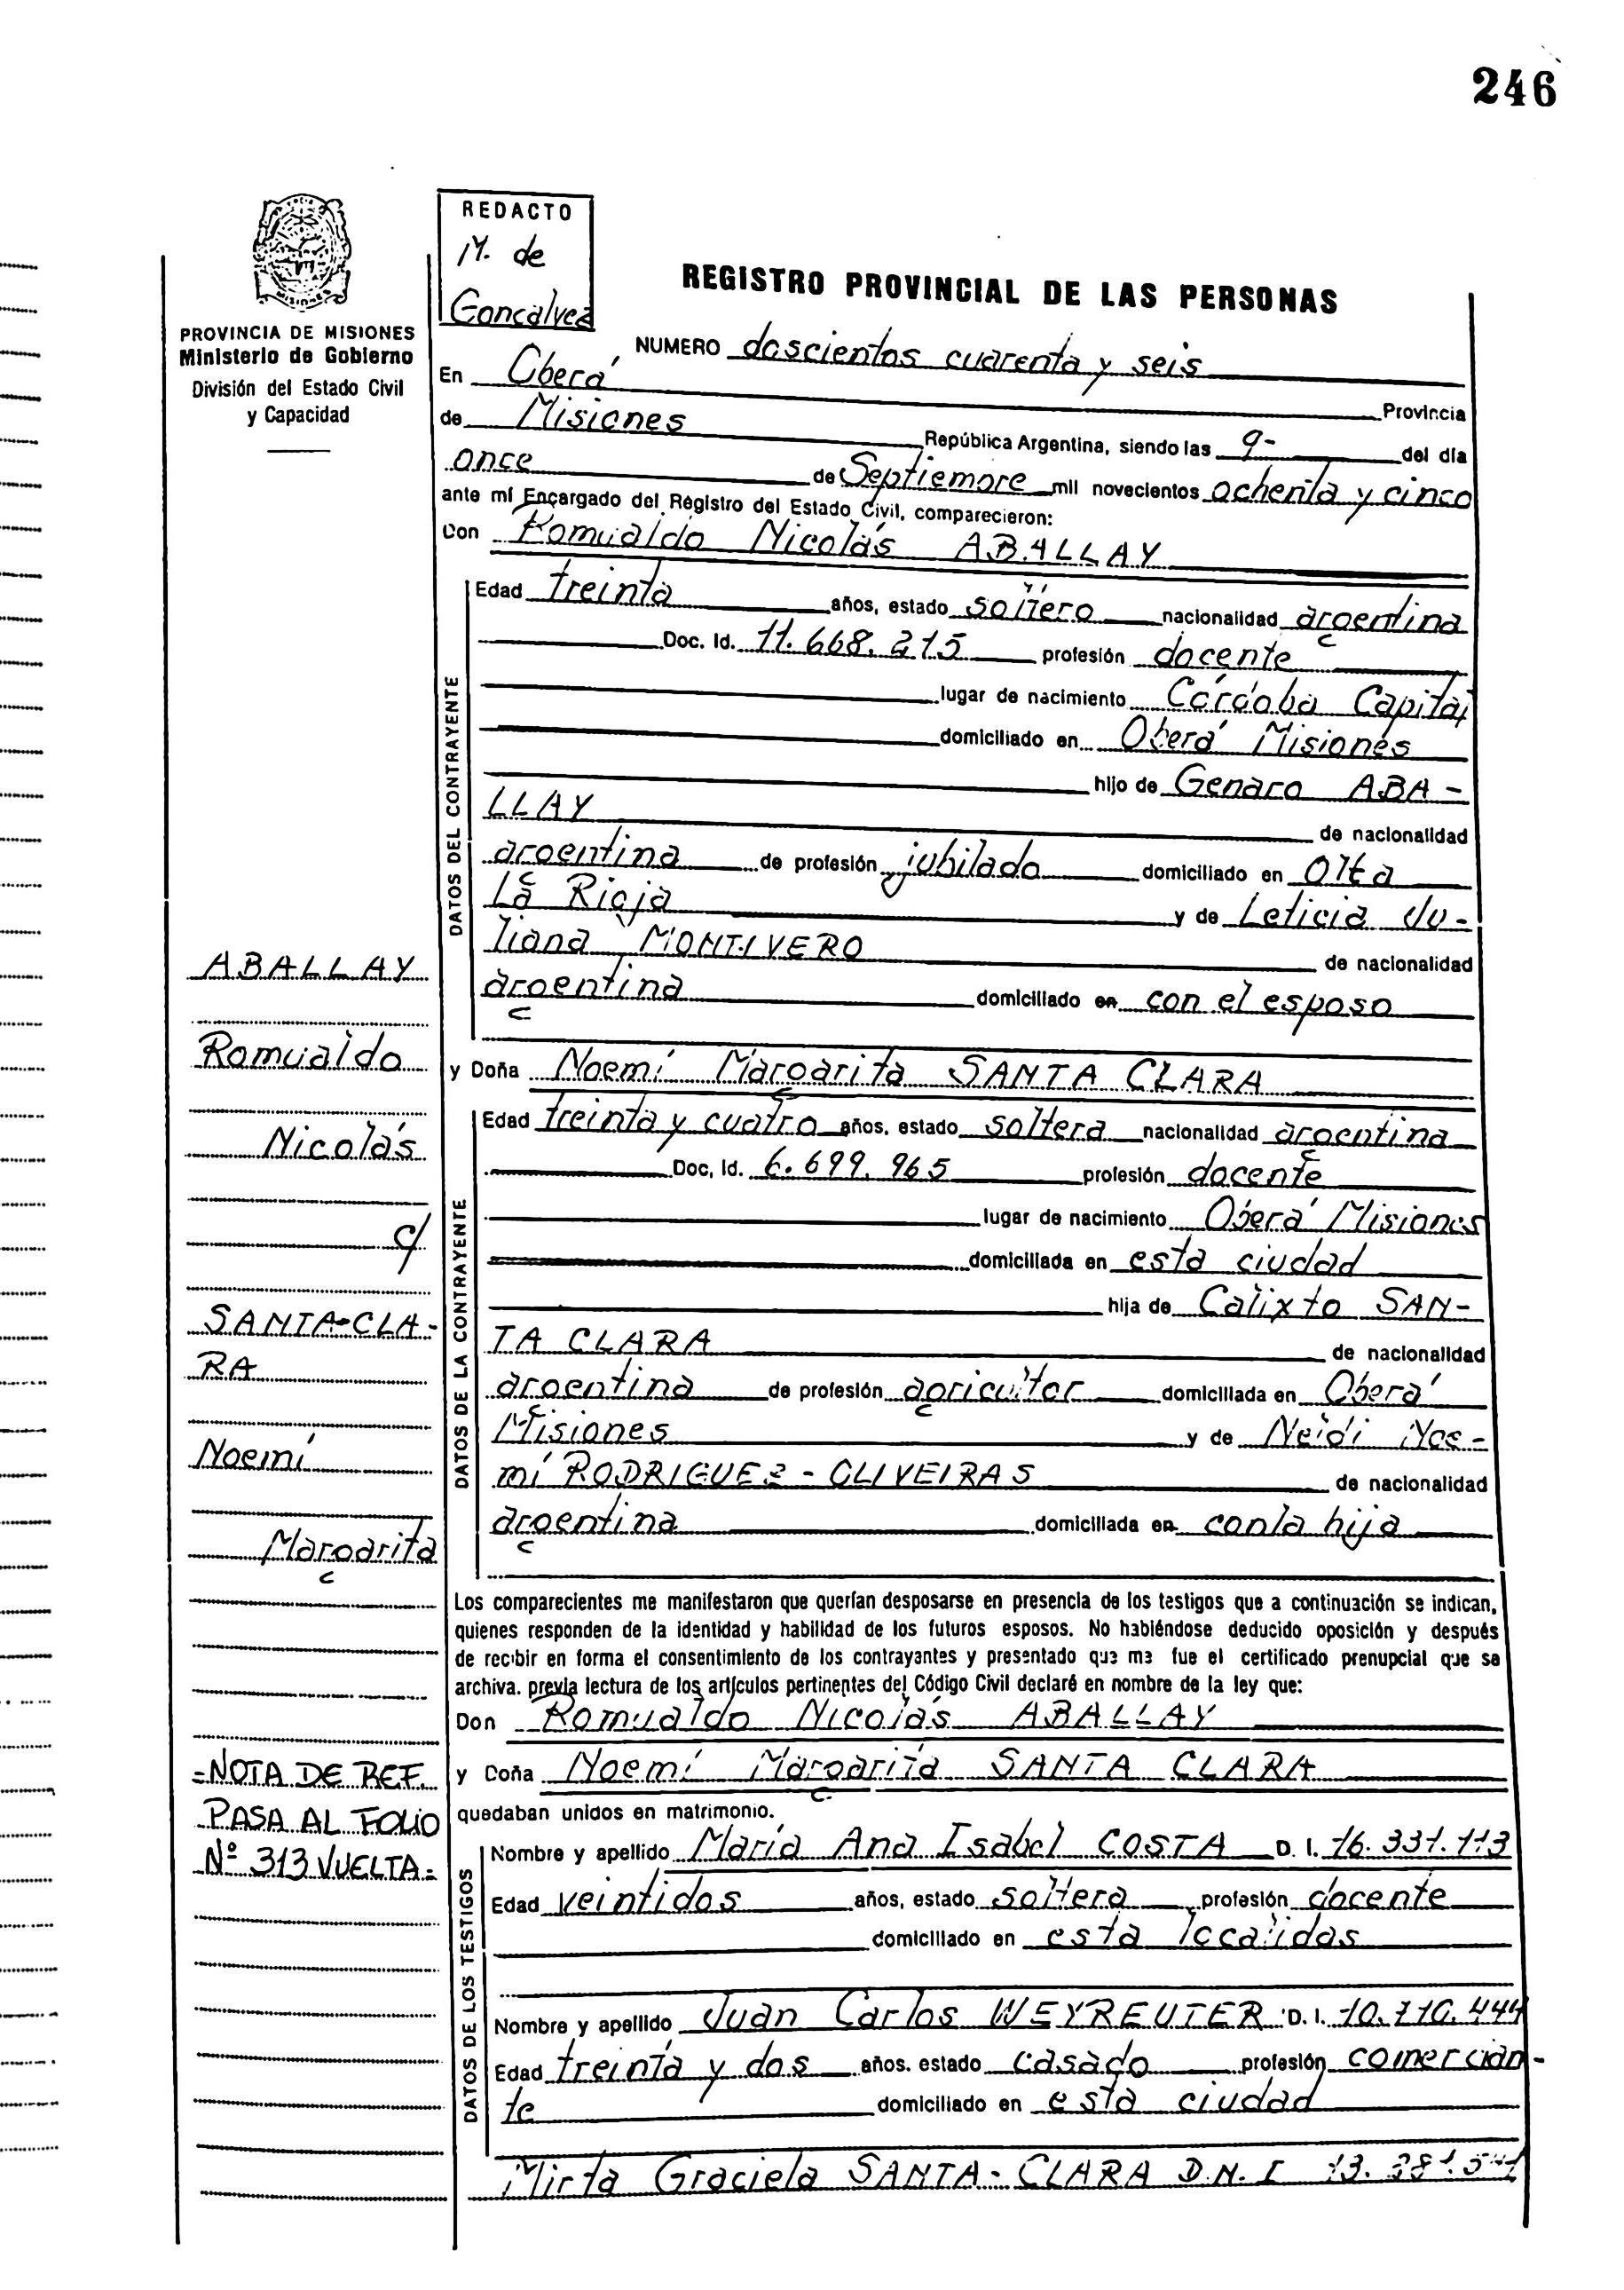 246
REDACTO
M. de
Goncalvez
PROVINCIA DE MISIONES
Ministerio de Gobierno
División del Estado Civil
y Capacidad
REGISTRO PROVINCIAL DE LAS PERSONAS
NUMERO doscientos cuarenta y seis
En Oberá Provincia
de Misiones República Argentina, siendo las 9- del día
once de Septiemore mil novecientos ochenta y cinco
ante mí Encargado del Registro del Estado Civil, comparecieron:
Don Romualdo Nicolás ABALLAY
DATOS DEL CONTRAYENTE
Edad treinta años, estado soltero nacionalidad argentina
Doc. Id. 11.668.215 profesión docente
lugar de nacimiento Córdoba Capital
domiciliado en Oberá Misiones
hijo de Genaro ABA-
LLAY de nacionalidad
argentina de profesión jubilado domiciliado en Olta
La Rioja y de Leticia Ju-
liana MONTIVERO de nacionalidad
argentina domiciliado en con el esposo
y Doña Noemí Margarita SANTA CLARA
DATOS DE LA CONTRAYENTE
Edad treinta y cuatro años, estado soltera nacionalidad argentina
Doc, Id. 6.699.965 profesión docente
lugar de nacimiento Oberá Misiones
domiciliada en esta ciudad
hija de Calixto SAN-
TA CLARA de nacionalidad
argentina de profesión agricultor domiciliada en Oberá
Misiones y de Neidi Noe-
mí RODRIGUEZ-OLIVEIRAS de nacionalidad
argentina domiciliada en con la hija
ABALLAY
Romualdo
Nicolás
c/
SANTA-CLA-
RA
Noemí
Margarita
=NOTA DE REF.
PASA AL FOLIO
Nº 313 VUELTA=
Los comparecientes me manifestaron que querían desposarse en presencia de los testigos que a continuación se indican,
quienes responden de la identidad y habilidad de los futuros esposos. No habiéndose deducido oposición y después
de recibir en forma el consentimiento de los contrayantes y presentado que me fue el certificado prenupcial que se
archiva. previa lectura de los artículos pertinentes del Código Civil declaré en nombre de la ley que:
Don Romualdo Nicolás ABALLAY
y Doña Noemí Margarita SANTA CLARA
quedaban unidos en matrimonio.
DATOS DE LOS TESTIGOS
Nombre y apellido María Ana Isabel COSTA D. I. 16.331.113
Edad veintidos años, estado soltera profesión docente
domiciliado en esta localidas
Nombre y apellido Juan Carlos WEYREUTER D. I. 10.710.444
Edad treinta y dos años. estado casado profesión comercian-
te domiciliado en esta ciudad
Mirta Graciela SANTA-CLARA D.N.I